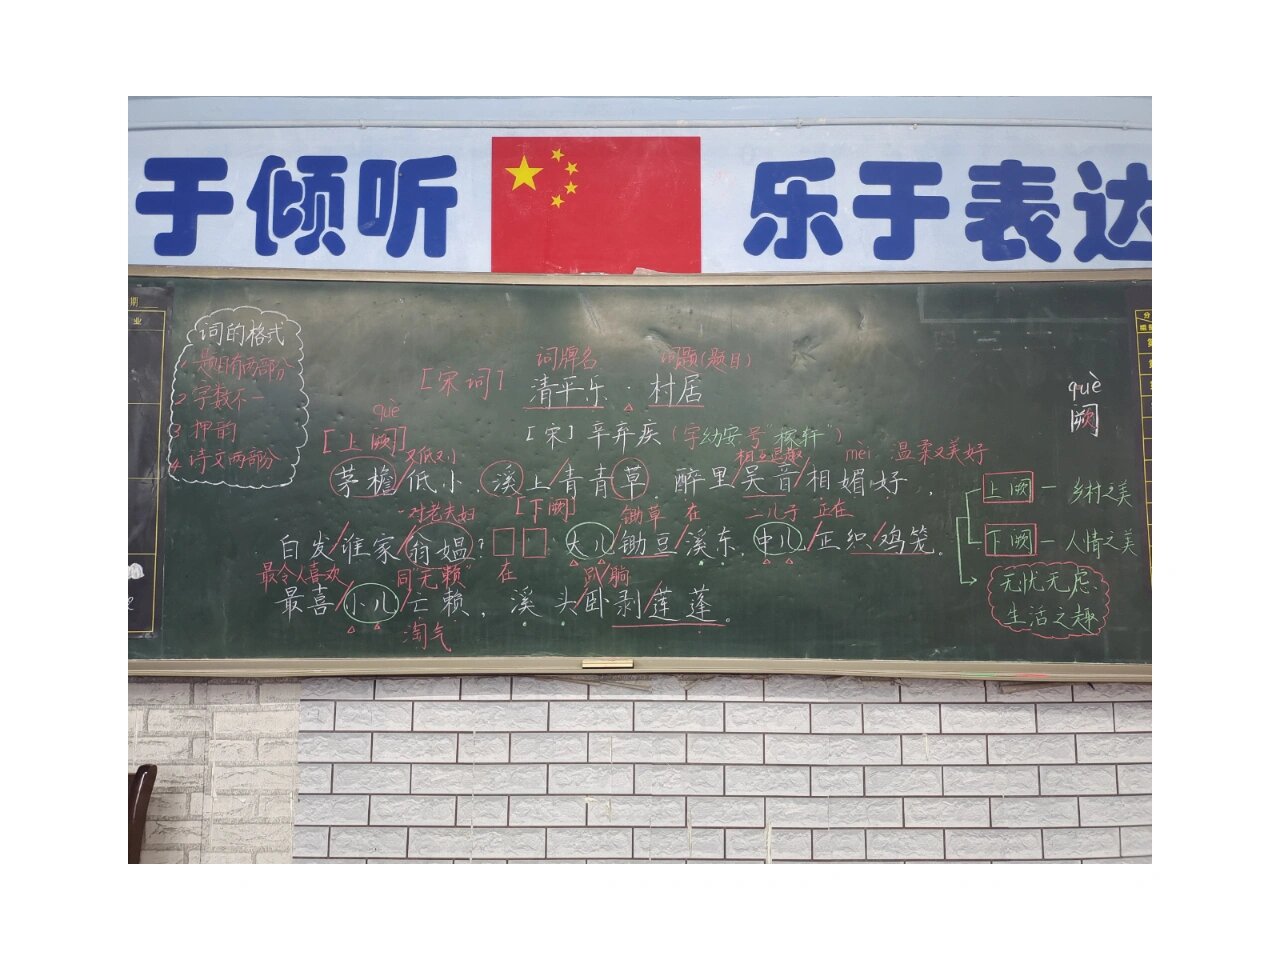 于倾听 乐于表达
词的格式
1 题目有两部分
2 字数不一
3 押韵
4 诗文两部分
词牌名 词题(题目)
[宋词] 清平乐·村居
[宋]辛弃疾(字幼安号"稼轩")
què
[上阕]
又低又小 相互逗趣 mèi 温柔又美好
茅檐/低小,溪上/青青草。醉里/吴音/相媚好,
一对老夫妇 [下阕] 锄草 在 二儿子 正在
白发/谁家/翁媪?大儿/锄豆/溪东,中儿/正织/鸡笼。
最令人喜欢 同"无赖" 在 趴/躺
最喜/小儿/亡赖,溪头/卧剥/莲蓬。
淘气
què
阙
上阕 — 乡村之美
下阕 — 人情之美
无忧无虑
生活之趣
期
业
分